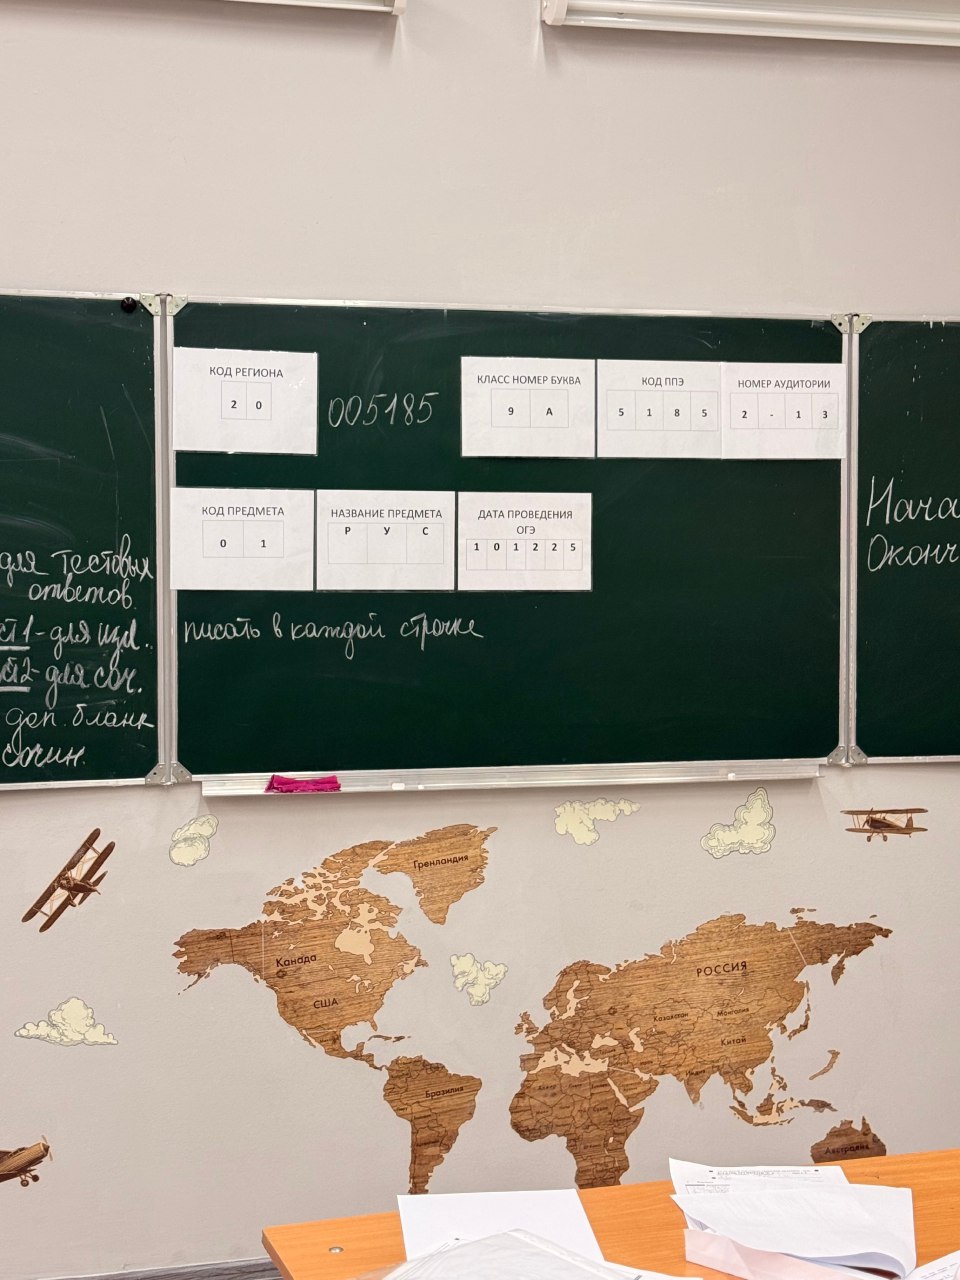 КОД РЕГИОНА
2 0
005185
КЛАСС НОМЕР БУКВА
9 А
КОД ППЭ
5 1 8 5
НОМЕР АУДИТОРИИ
2 - 1 3
КОД ПРЕДМЕТА
0 1
НАЗВАНИЕ ПРЕДМЕТА
Р У С
ДАТА ПРОВЕДЕНИЯ
ОГЭ
1 0 1 2 2 5
писать в каждой строчке
для тестовых
ответов
1 - для изл.
2 - для соч.
доп. бланк
сочин.
Нача
Оконч
Гренландия
Канада
США
Бразилия
РОССИЯ
Казахстан
Монголия
Китай
Индия
Австралия